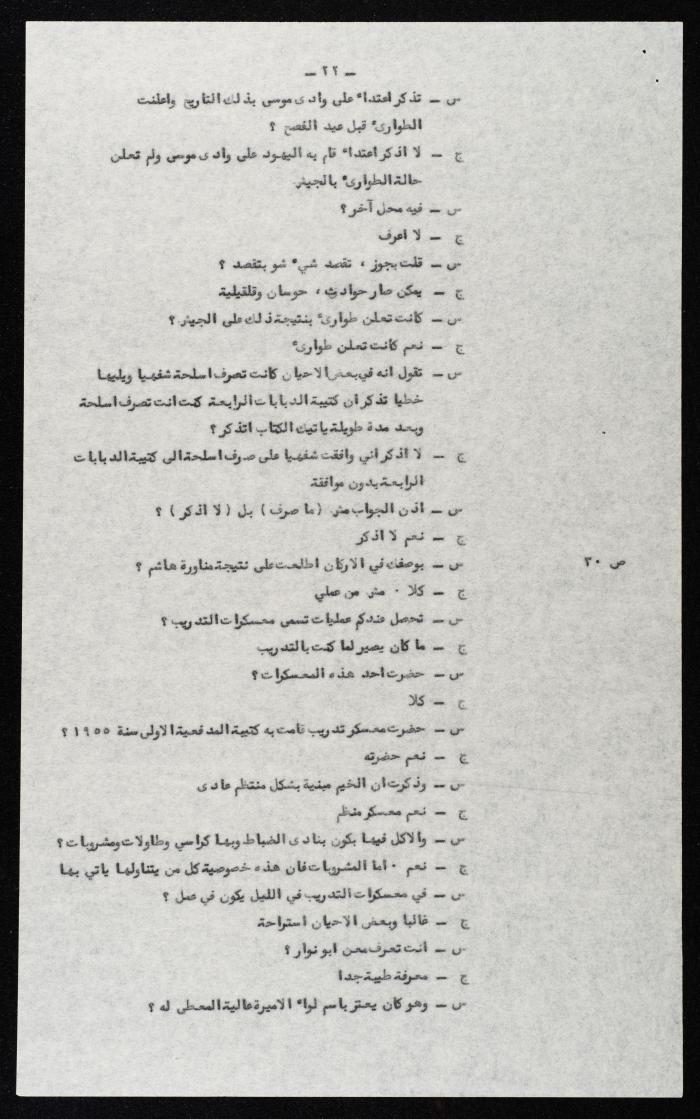 – ٢٢ –
س – تذكر اعتداء على وادى موسى بذلك التاريخ واعلنت
الطوارىء قبل عيد الفصح ؟
ج – لا اذكر اعتداء قام به اليهود على وادى موسى ولم تعلن
حالة الطوارىء بالجيش
س – فيه محل آخر ؟
ج – لا اعرف
س – قلت بجوز ، تقصد شيء شو بتقصد ؟
ج – يمكن صار حوادث ، حوسان وقلقيلية
س – كانت تعلن طوارىء بنتيجة ذلك على الجيش ؟
ج – نعم كانت تعلن طوارىء
س – تقول انه في بعض الاحيان كانت تصرف اسلحة شفهيا ويليها
خطيا تذكر ان كتيبة الدبابات الرابعة كنت انت تصرف اسلحة
وبعد مدة طويلة ياتيك الكتاب اتذكر ؟
ج – لا اذكر اني وافقت شفهيا على صرف اسلحة الى كتيبة الدبابات
الرابعة بدون موافقة
س – اذن الجواب مش (ما صرف) بل (لا اذكر) ؟
ج – نعم لا اذكر
س – بوصفك في الاركان اطلعت على نتيجة مناورة هاشم ؟
ص ٣٠
ج – كلا ٠ مش من عملي
س – تحصل عندكم عمليات تسمى معسكرات التدريب ؟
ج – ما كان يصير لما كنت بالتدريب
س – حضرت احد هذه المعسكرات ؟
ج – كلا
س – حضرت معسكر تدريب قامت به كتيبة المدفعية الاولى سنة ١٩٥٥ ؟
ج – نعم حضرته
س – وذكرت ان الخيم مبنية بشكل منتظم عادى
ج – نعم معسكر منظم
س – والاكل فيها بكون بنادى الضباط وبها كراسي وطاولات ومشروبات ؟
ج – نعم ٠ اما المشروبات فان هذه خصوصية كل من يتناولها ياتي بها
س – في معسكرات التدريب في الليل يكون في صل ؟
ج – غالبا وبعض الاحيان استراحة
س – انت تعرف معن ابو نوار ؟
ج – معرفة طيبة جدا
س – وهو كان يعتز باسم لواء الاميرة عالية المعطى له ؟